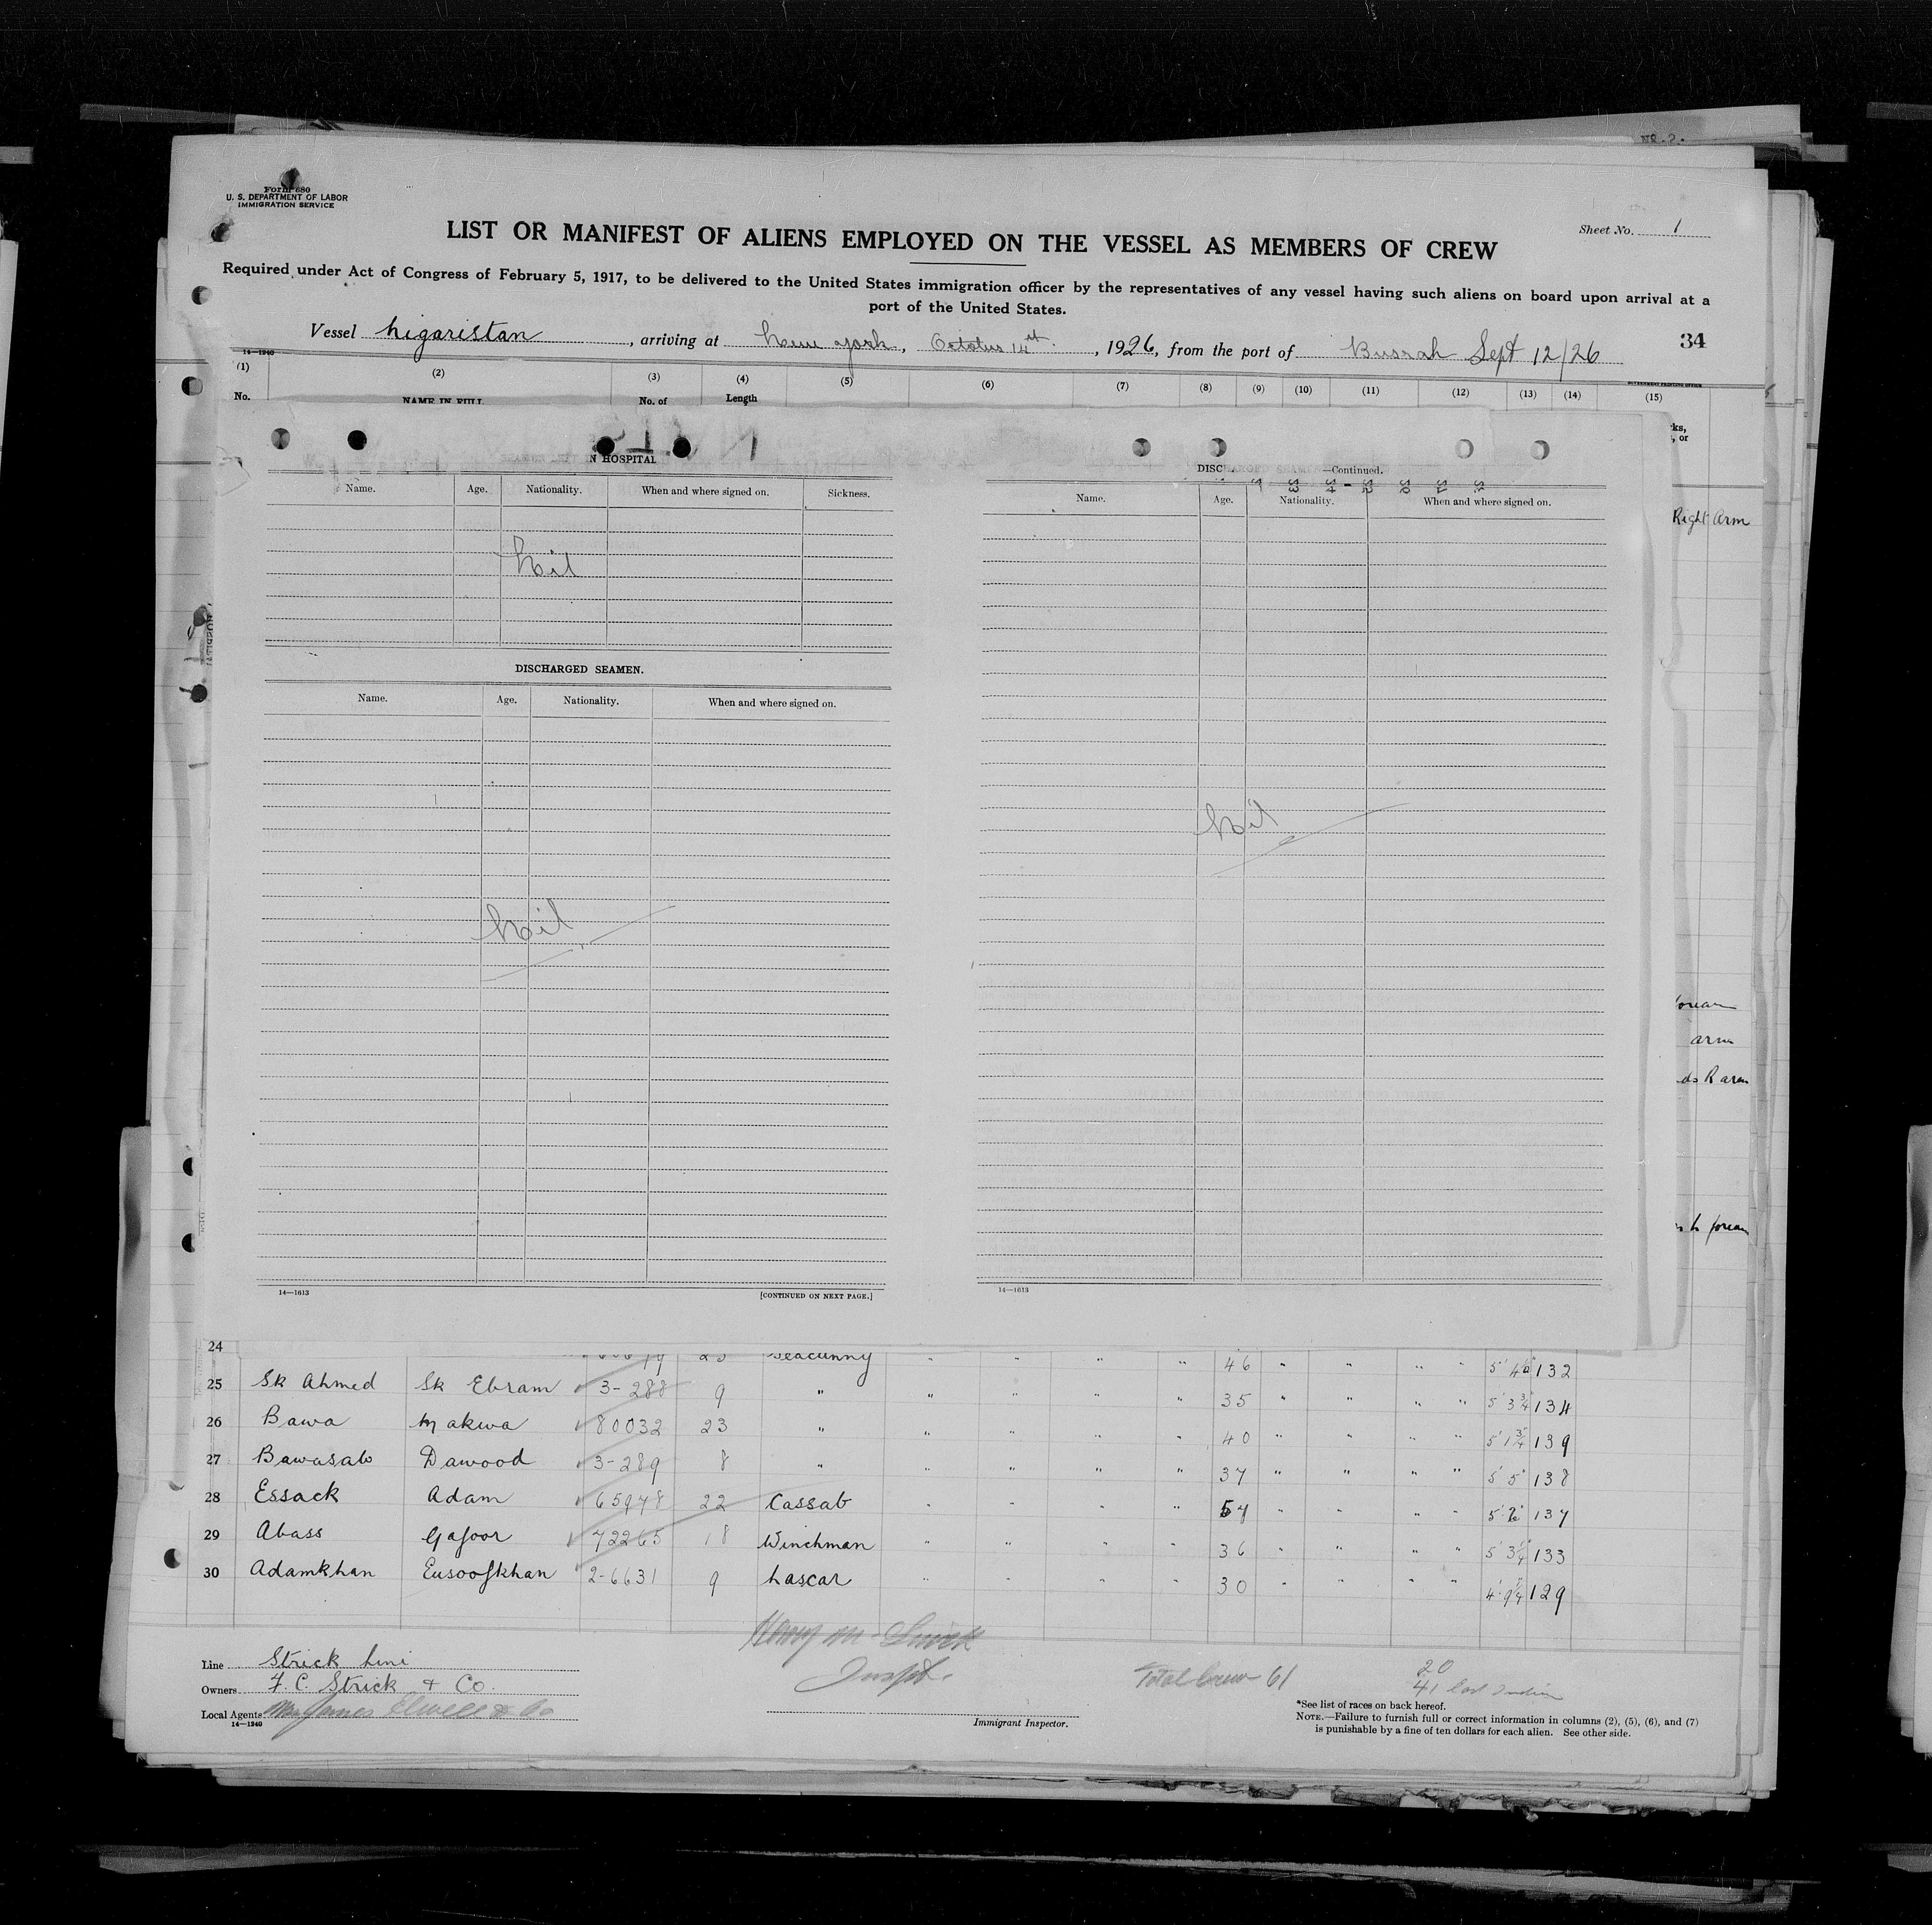 No. 2.
Form 680
U. S. DEPARTMENT OF LABOR
IMMIGRATION SERVICE
Sheet No. 1
LIST OR MANIFEST OF ALIENS EMPLOYED ON THE VESSEL AS MEMBERS OF CREW
Required under Act of Congress of February 5, 1917, to be delivered to the United States immigration officer by the representatives of any vessel having such aliens on board upon arrival at a
port of the United States.
Vessel Nigaristan, arriving at New York, October 14st, 1926, from the port of Busrah Sept 12/26
34
14—1240
(1) (2) (3) (4) (5) (6) (7) (8) (9) (10) (11) (12) (13) (14) (15)
No. NAME IN FULL No. of Length
ks,
, or
N HOSPITAL
Name. Age. Nationality. When and where signed on. Sickness.
Nil
DISCHARGED SEAMEN.
Name. Age. Nationality. When and where signed on.
Nil
14—1613 [CONTINUED ON NEXT PAGE.]
DISCHARGED SEAMEN—Continued.
Name. Age. Nationality. When and where signed on.
Nil
14—1613
Right Arm
arm
do R arm
24 Seacunny " " " " 46 " " " " 132
25 Sk Ahmed Sk Ebram 3-288 9 " " " " " 35 " " " " 5' 3 3/4 134
26 Bawa Makwa 80032 23 " " " " " 40 " " " " 5' 1 3/4 139
27 Bawasab Dawood 3-289 8 " " " " " 37 " " " " 5' 5" 138
28 Essack Adam 65978 22 Cassab " " " " 57 " " " " 137
29 Abass Gafoor 72265 18 Winchman " " " " 36 " " " " 133
30 Adamkhan Eusoofkhan 2-6631 9 Lascar " " " " 30 " " " " 129
Line Strick Line
Owners F. C. Strick & Co.
Local Agents James Elwell & Co
14—1240
Inspt.
Immigrant Inspector.
Total Crew 61
20
41 East Indian
*See list of races on back hereof.
NOTE.—Failure to furnish full or correct information in columns (2), (5), (6), and (7)
is punishable by a fine of ten dollars for each alien. See other side.